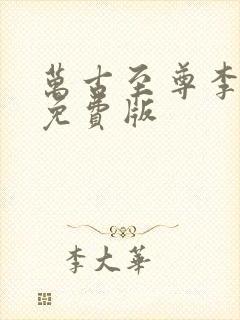 萬古至尊李
免費版
李大華